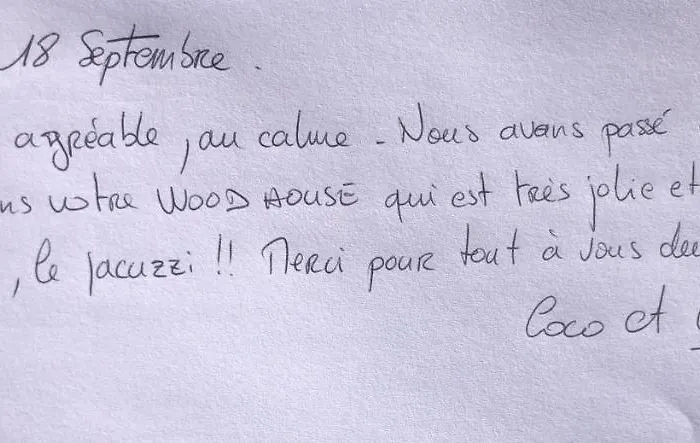 18 Septembre.
agréable, au calme - Nous avons passé
ns votre WOOD HOUSE qui est très jolie et
, le jacuzzi !! Merci pour tout à vous deu
Coco et